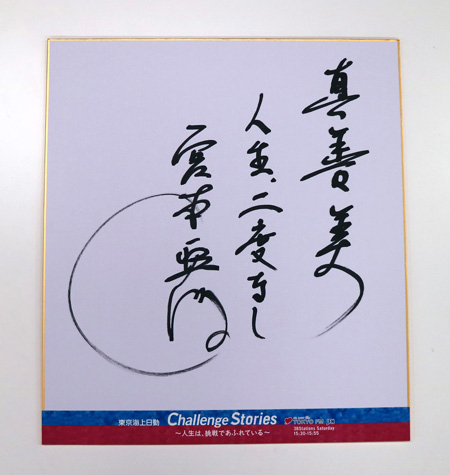 真善美
人生、二度なし
宮本亜門
東京海上日動 Challenge Stories
～人生は、挑戦であふれている～
TOKYO FM
38Stations Saturday
15:30-15:55